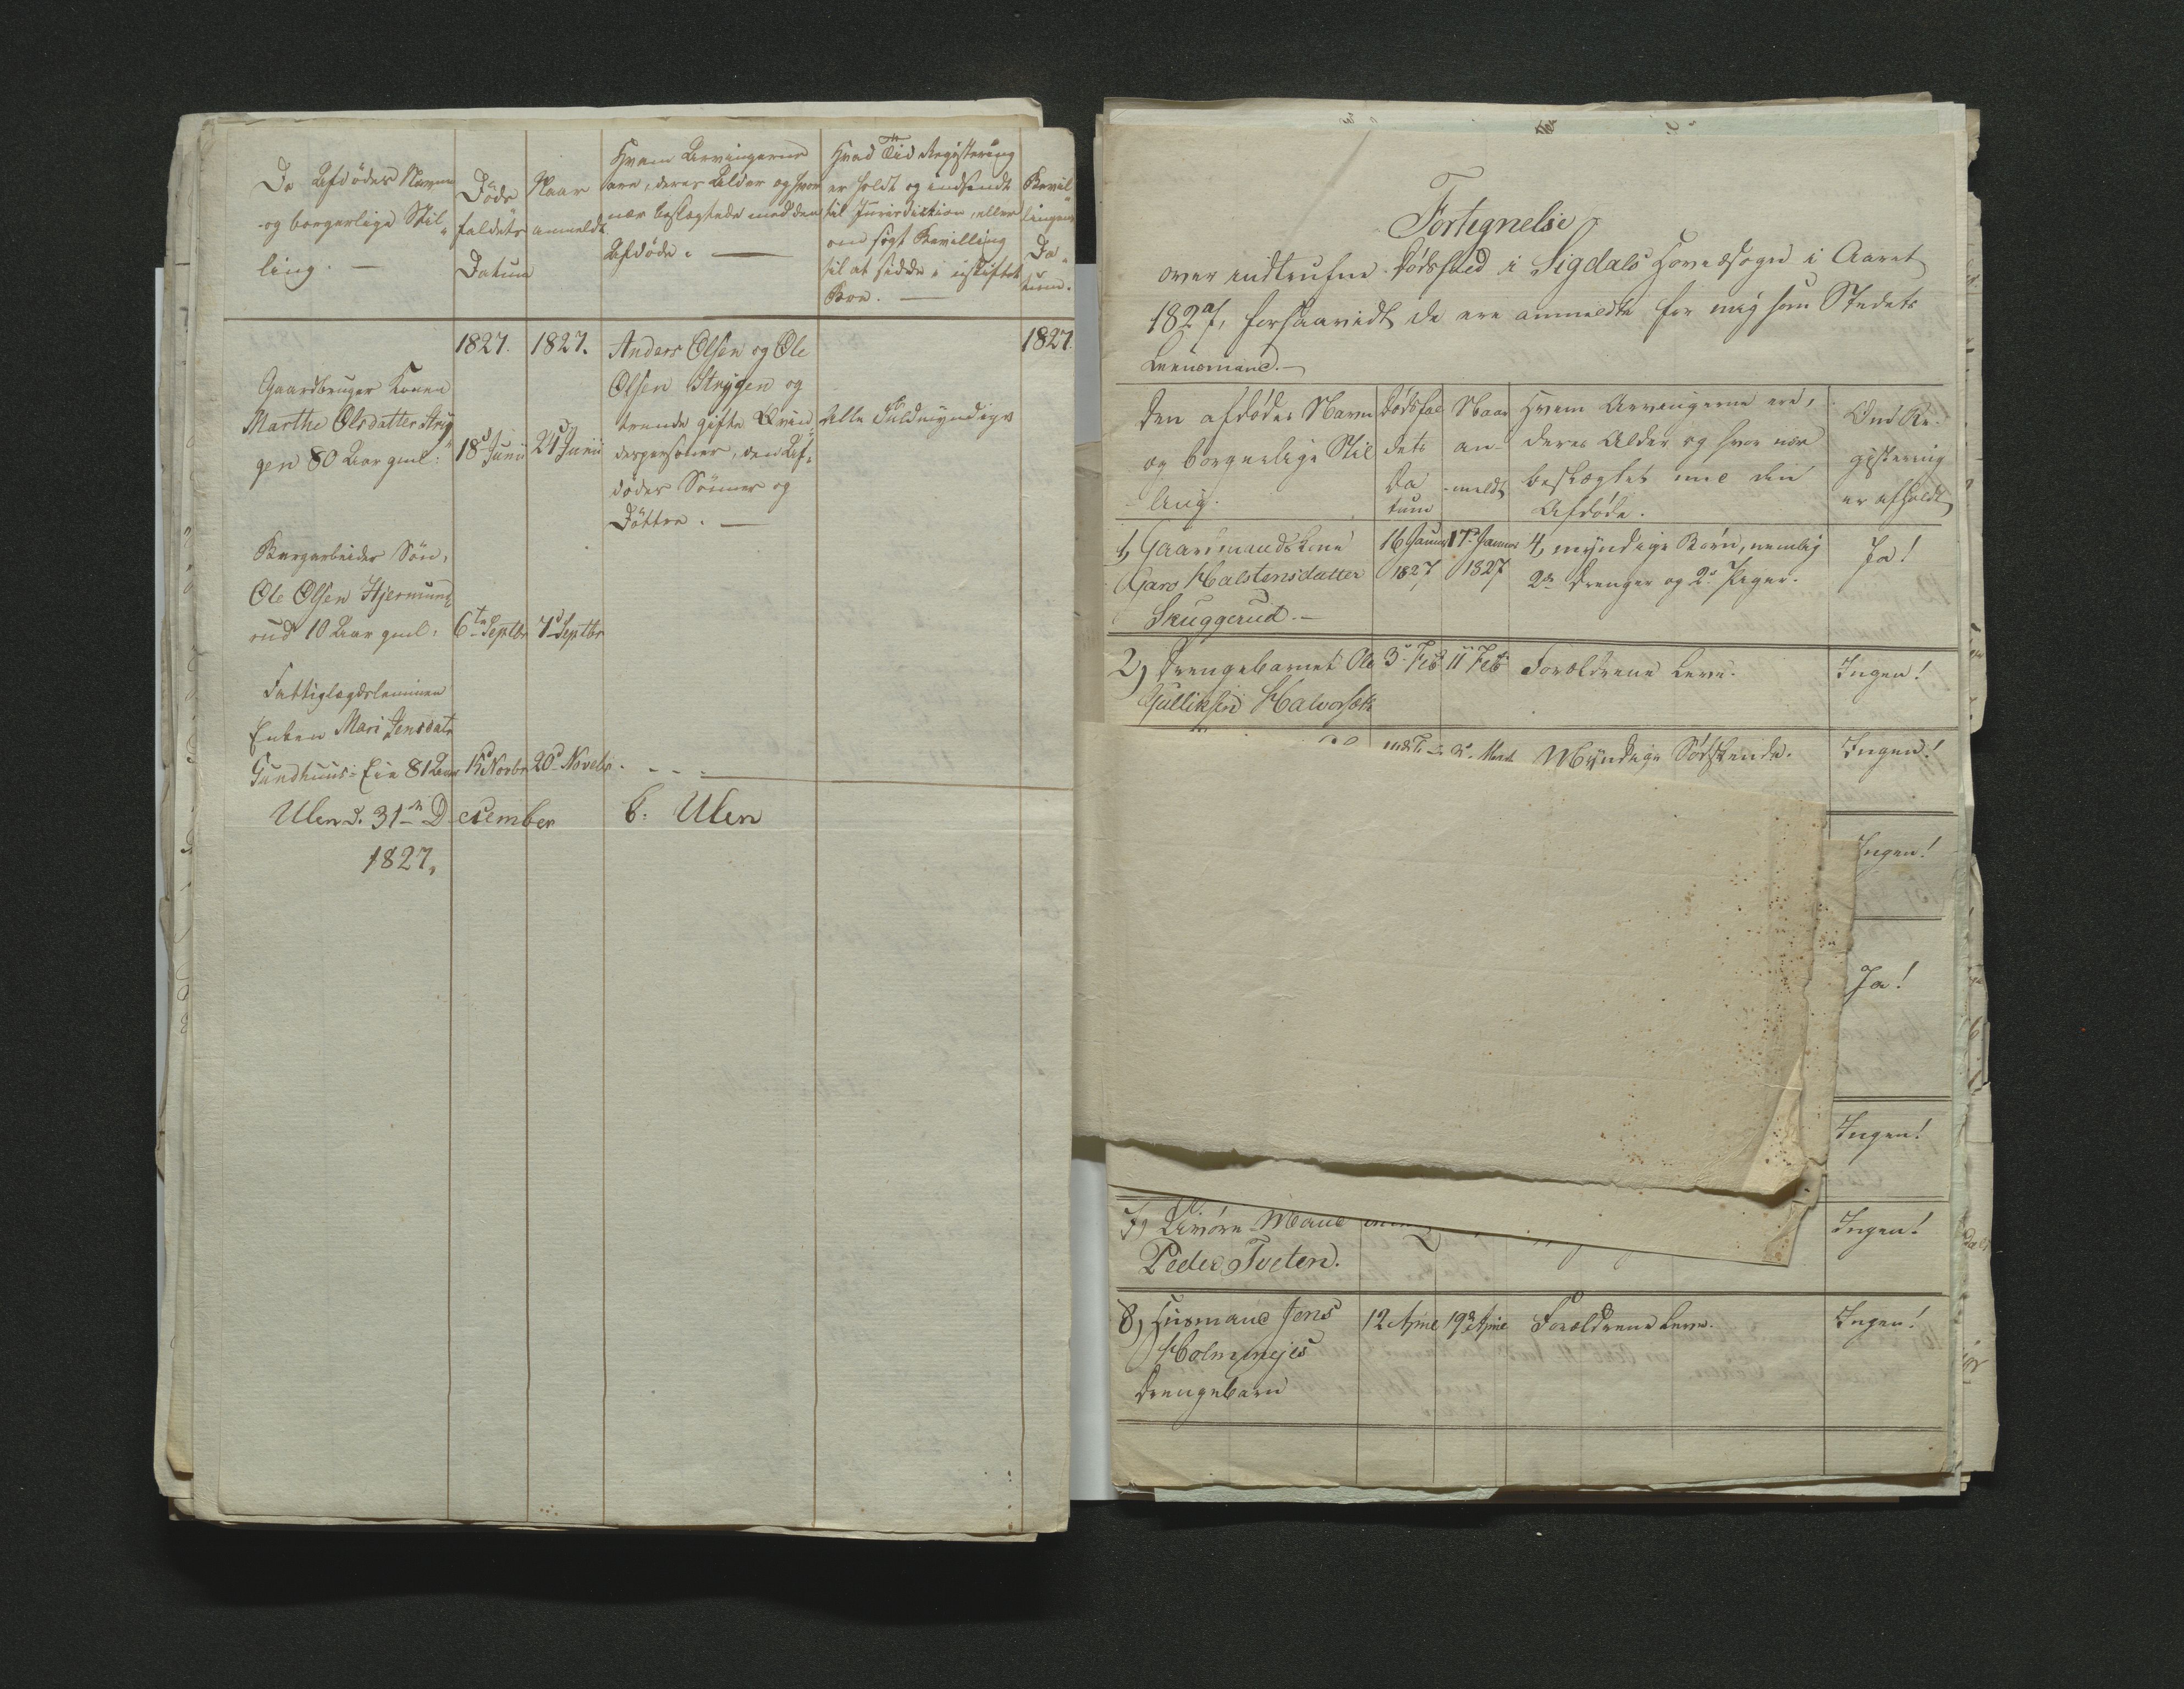 De Afdödes Navne
og borgerlige Stil-
ling. —
Döds
faldets
Datum
Naar
anmeldt
Hvem Arvingerne
ere, deres Alder og hvor
nær beslægtede med den
Afdöde. —
Hvad Tid Registering
er holdt og indsendt
til Jurisdiction, eller
om sögt Bevilling
til at sidde i uskiftet
Boe. —
Bevil-
lingens
Da-
tum.
1827.
1827.
1827.
Gaardbruger Konen
Marthe Olsdatter Stry
gen 80 Aar gml:
18d Junii
24d Junii
Anders Olsen og Ole
Olsen Strygen og
trende gifte Qvin-
despersoner, den Af-
dödes Sönner og
Döttre. —
Alle Fuldmyndige
Bergarbeider Sön,
Ole Olsen Hjermund
rud 10 Aar gml:
6te Septbr
7d Septbr
Fattiglægdslemmen
Enken Mari Jensdatr
Sundhuus-Eie 81 Aar
15d Novbr
20d Novebr.
Ulen d. 31te December
1827.
C: Ulen
Fortegnelse
over indtrufne Dødsfald i Sigdals Hovedsogn i Aaret
1827, forsaavidt de ere anmeldte for mig som Stedets
Lensmand. —
Den afdødes Navn
og borgerlige Stil
ling.
Dødsfal
dets
Da
tum
Naar
an-
meldt
Hvem Arvingerne ere,
deres Alder og hvor nær
beslægtet med den
Afdøde.
Om Re-
gistering
er afholdt
1, Gaardmandskone
Kari Halstensdatter
Skuggerud. —
16 Januar
1827
17de Januar
1827
4, myndige Børn, nemlig
2de Drenge og 2de Piger.
Ja!
2, Drengebarnet Ole
Gulliksen Halvorsek
3 Feb
11 Feb
Forældrene leve.
Ingen!
Myndige Sødskende.
Ingen!
Ingen!
Ja!
Ingen!
7, Mand
Peder Tveten.
Ingen!
8, Husmand Jens
Holmmejes
Drengebarn
12 April
19de April
Forældrene leve.
Ingen!